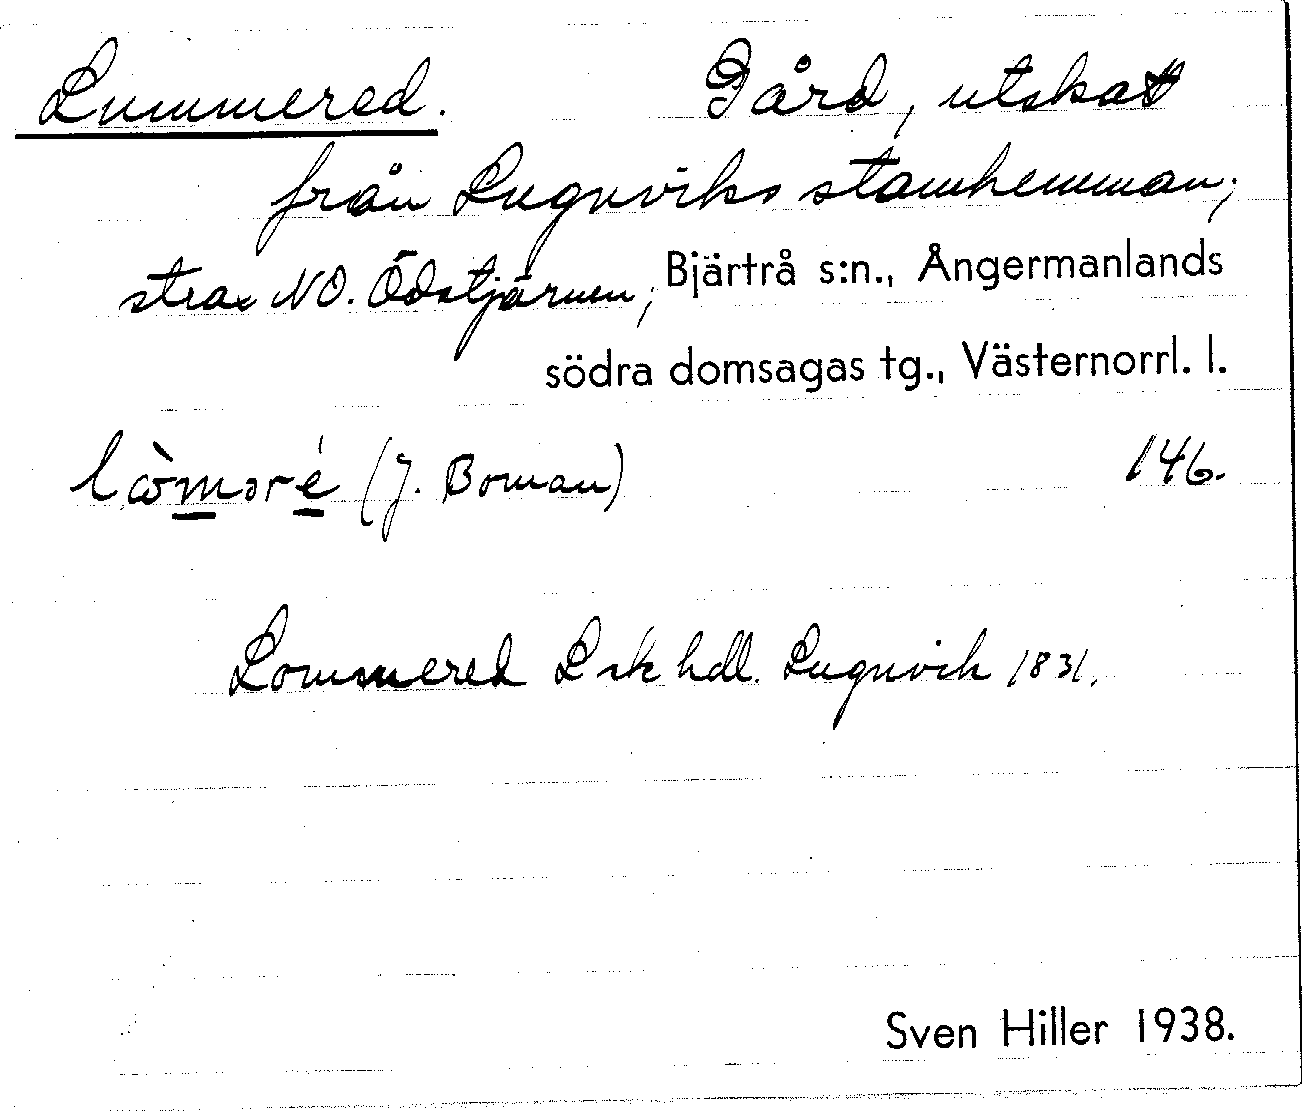 Lummered. Gård, utskat
från Lugnviks stamhemman,
strax NO. Ödstjärnen, Bjärtrå s:n., Ångermanlands
södra domsagas tg., Västernorrl. l.
(J. Boman) 146.
Lommered Lsk hdl. Lugnvik 1831.
Sven Hiller 1938.